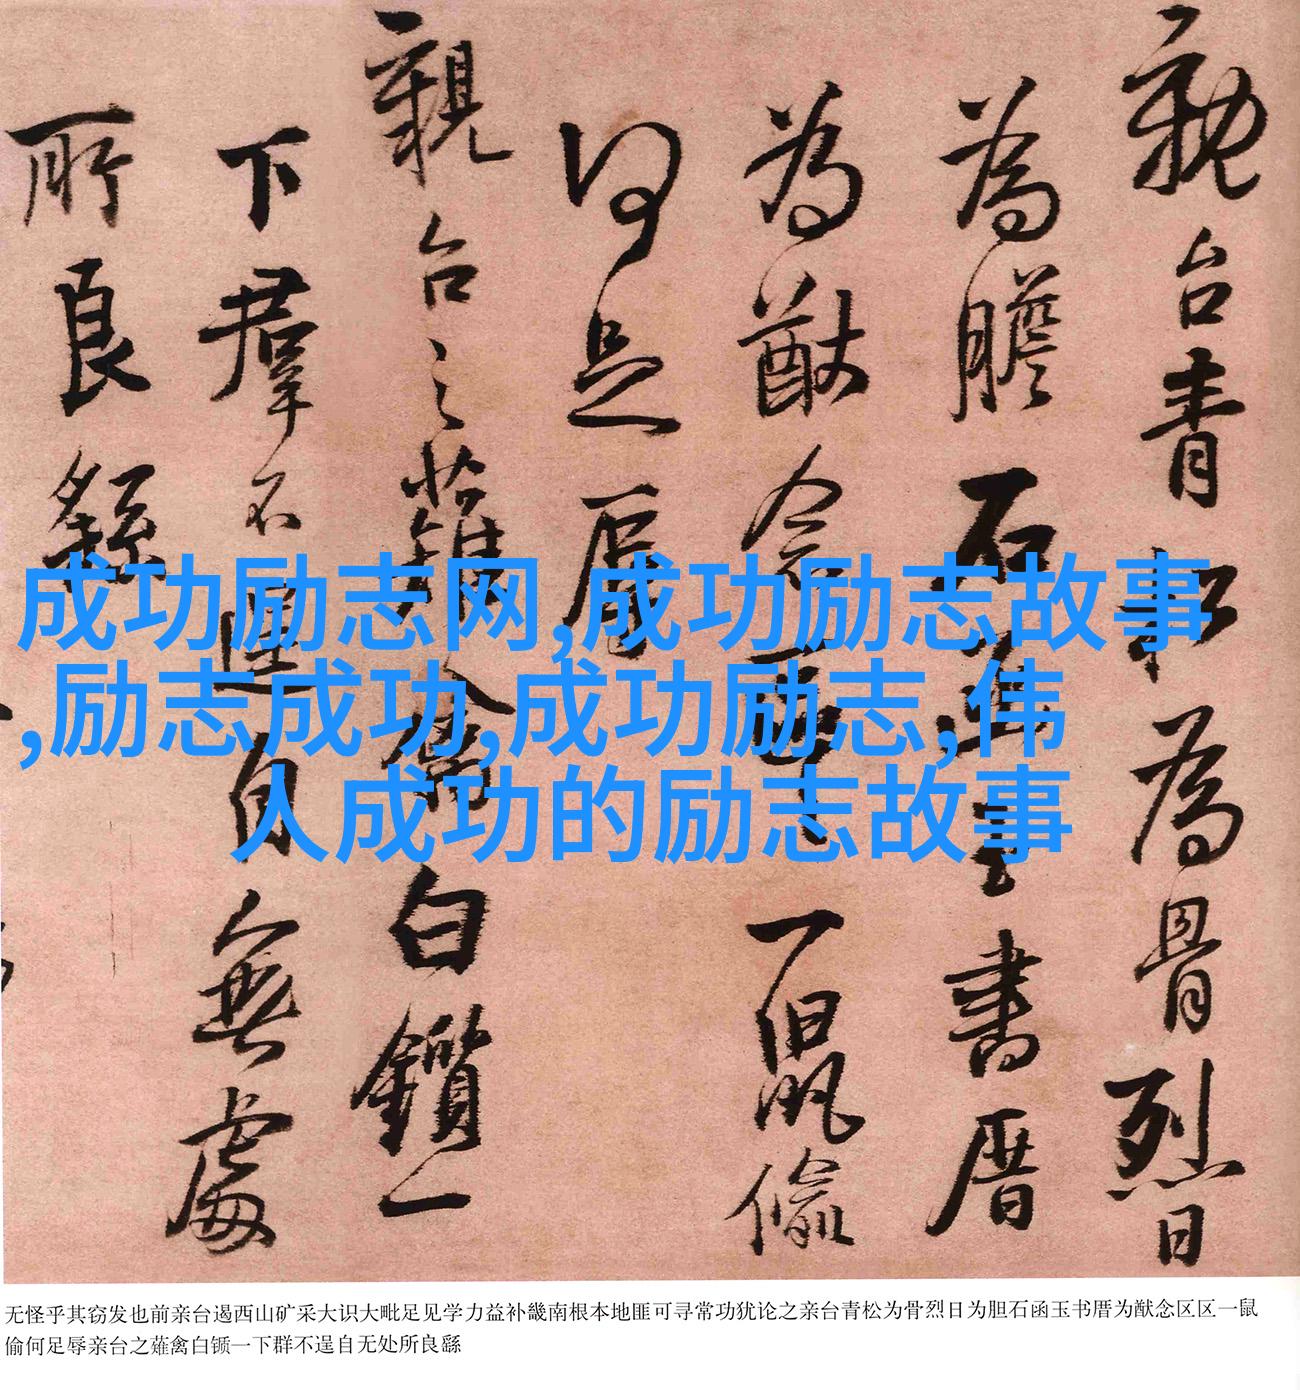 親台青松為骨烈日
為膽石函玉書厝
為猷念區區一鼠偷
何足辱
親台之薙禽白鑕一
下羣不逞自無處
所良繇
成功励志网,成功励志故事
,励志成功,成功励志,伟
人成功的励志故事
无怪乎其窃发也前亲台遏西山矿采大识大毗足见学力益补畿南根本地匪可寻常功犹论之亲台青松为骨烈日为胆石函玉书厝为猷念区区一鼠
偷何足辱亲台之薙禽白锧一下群不逞自无处所良繇